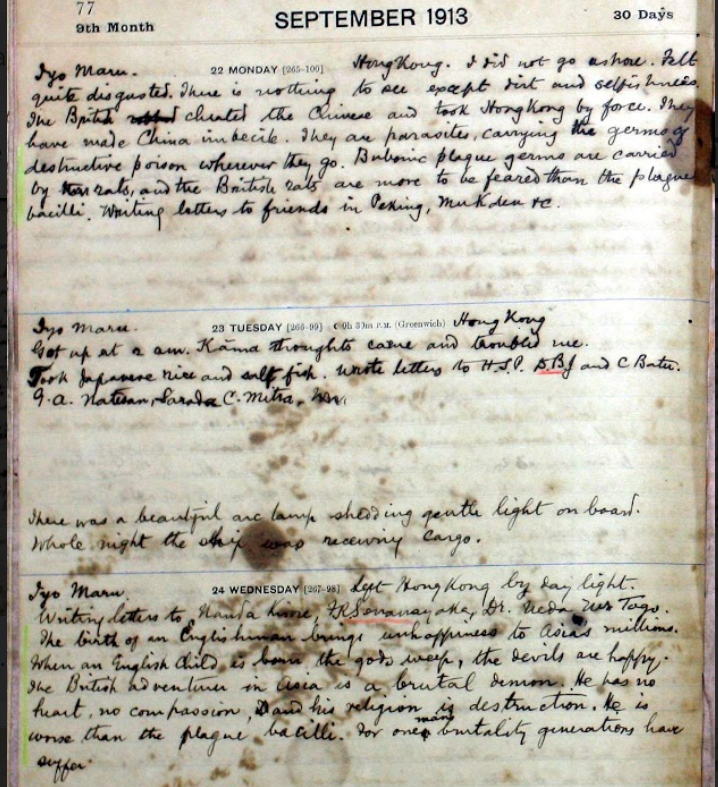 77
9th Month
SEPTEMBER 1913
30 Days
Iyo Maru. 22 MONDAY [265-100] HongKong. I did not go ashore. Felt
quite disgusted. There is nothing to see except dirt and selfishness.
The British cheated the Chinese and took HongKong by force. They
have made China imbecile. They are parasites, carrying the germs of
destructive poison wherever they go. Bubonic plague germs are carried
by rats, and the British rats are more to be feared than the plague
bacilli. Writing letters to friends in Peking, Mukden &c.
Iyo Maru. 23 TUESDAY [266-99] 0h 30m P.M. (Greenwich) Hong Kong
Got up at 2 am. Kāma thoughts came and troubled me.
Took Japanese rice and salt fish. Wrote letters to H.S.P. D.B.J and C Batu.
G.A. Natesan, Sarada C. Mitra,
There was a beautiful arc lamp shedding gentle light on board.
Whole night the ship was receiving cargo.
Iyo Maru. 24 WEDNESDAY [267-98] Left HongKong by day light.
Writing letters to Nanda Kisore, Dr. Ueda Togo.
The birth of an Englishman brings unhappiness to Asia's millions.
When an English child is born the gods weep, the devils are happy.
The British adventurer in Asia is a brutal demon. He has no
heart, no compassion, and his religion is destruction. He is
worse than the plague bacilli. For one man's brutality generations have
suffer.